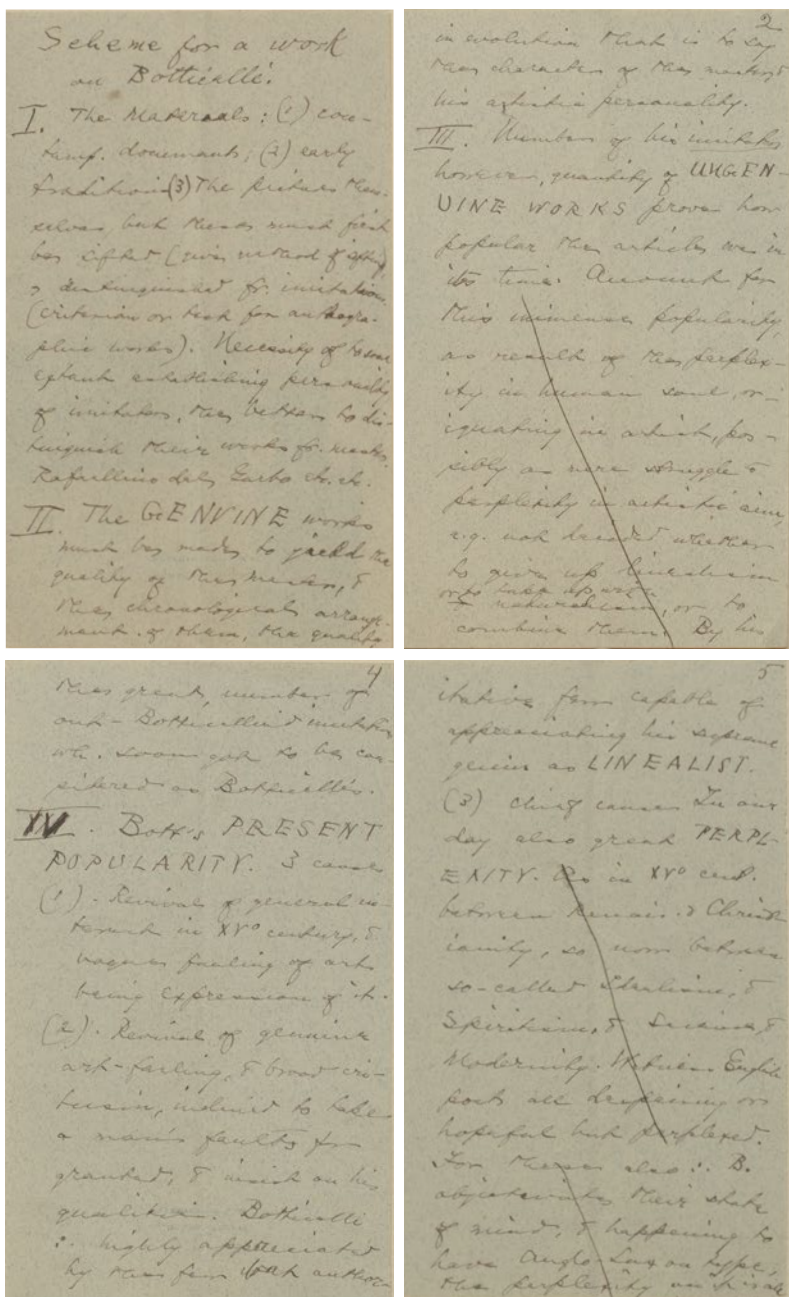 Scheme for a work
on Botticelli.
I. The Materials: (1) con-
temp. documents; (2) early
tradition (3) The pictures them-
selves but these must first
be sifted (give method of sifting
distinguished fr. imitations
(criterion or test for autogra-
phic works). Necessity of to some
extent establishing personality
of imitators, the better to dis-
tinguish their works fr. master.
Rafaellino del Garbo etc. etc.
II. The GENUINE works
must be made to yield the
quality of the master, &
the chronological arrange-
ment of them, the quality
2
in evolution that is to say
the character of the master, &
his artistic personality.
III. Number of his imitators
however, quantity of UNGEN-
UINE WORKS prove how
popular the articles was in
its time. Account for
this immense popularity,
as result of the perplex-
ity in human soul, or-
iginating in artist, pos-
sibly as mere struggle &
perplexity in artistic aim,
e.g. not decided whether
to give up linealism
or to take up with
naturalism, or to
combine them. By his
4
the great number of
out-Botticelli'd imitators
wh. soon got to be con-
sidered as Botticelli's.
IV. Bott's PRESENT
POPULARITY. 3 causes
(1). Revival of general in-
terest in XVº century, &
vague feeling of art
being expression of it.
(2). Revival of genuine
art-feeling, & broad cri-
ticism, inclined to take
a man's faults for
granted, & insist on his
qualities. Botticelli
∴ highly appreciated
by the few authori-
5
tative few capable of
appreciating his supreme
genius as LINEALIST.
(3) chief cause. In our
day also great PERPL-
EXITY. As in XVº cent.
between Renais. & Christ-
ianity, so now between
so-called Idealism, &
Spiritism, & Science, &
Modernity. Witness English
poets all despairing or
hopeful but perplexed.
For these also ∴ B.
objectivates their state
of mind, & happening to
have Anglo-Saxon type,
the perplexity